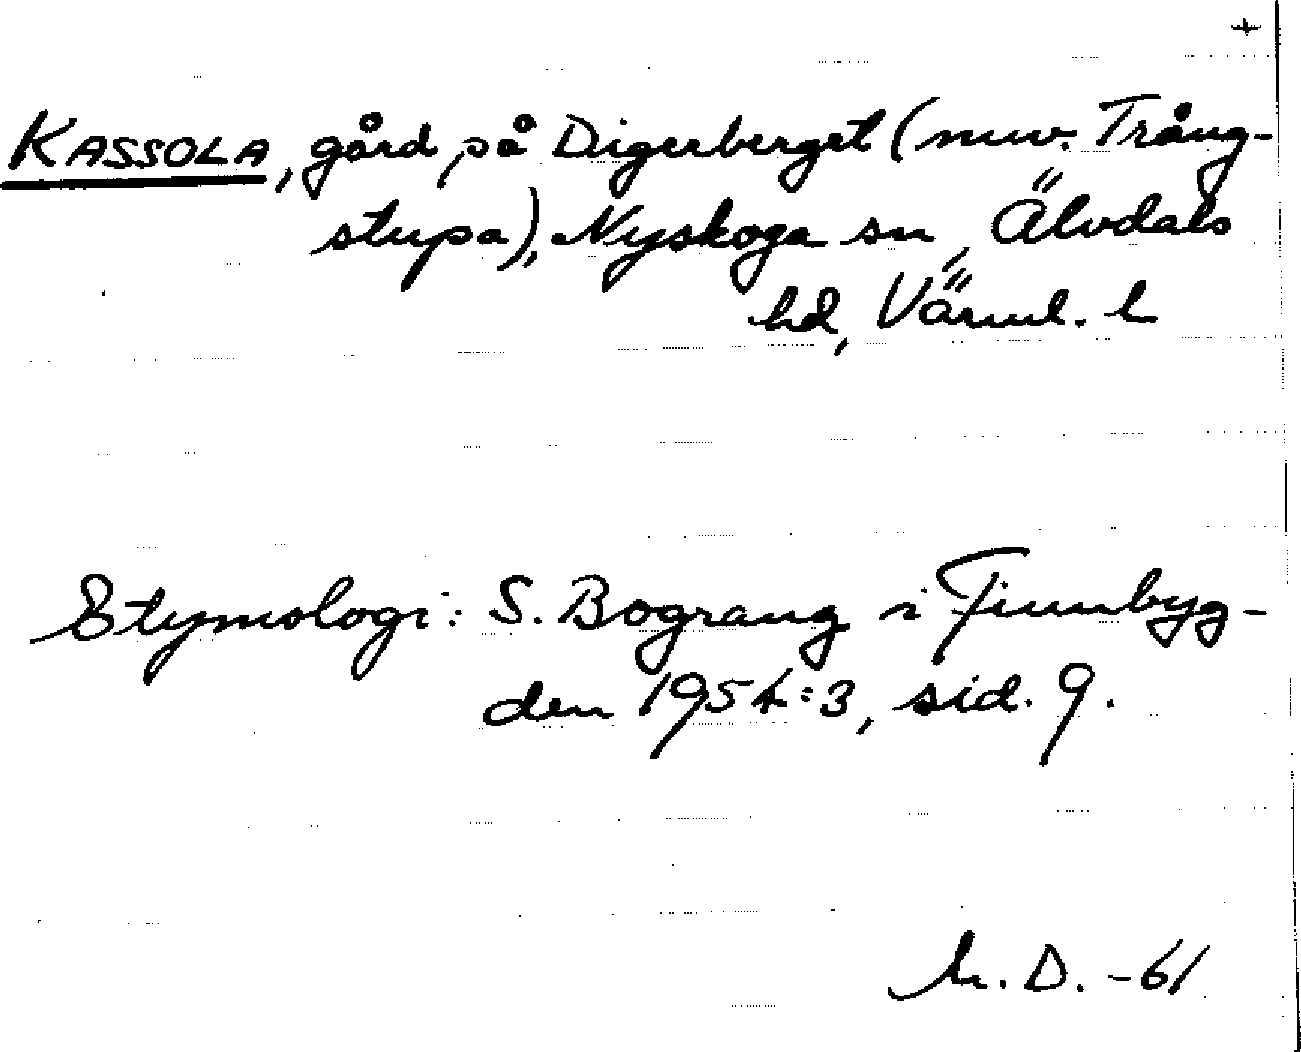 KASSOLA, gård på Digerberget (nuv. Trång-
stupa), Nyskoga sn, Älvdals
hd, Värml. l
Etymologi: S. Bograng i Finnbyg-
den 1954:3, sid. 9.
L. D. -61